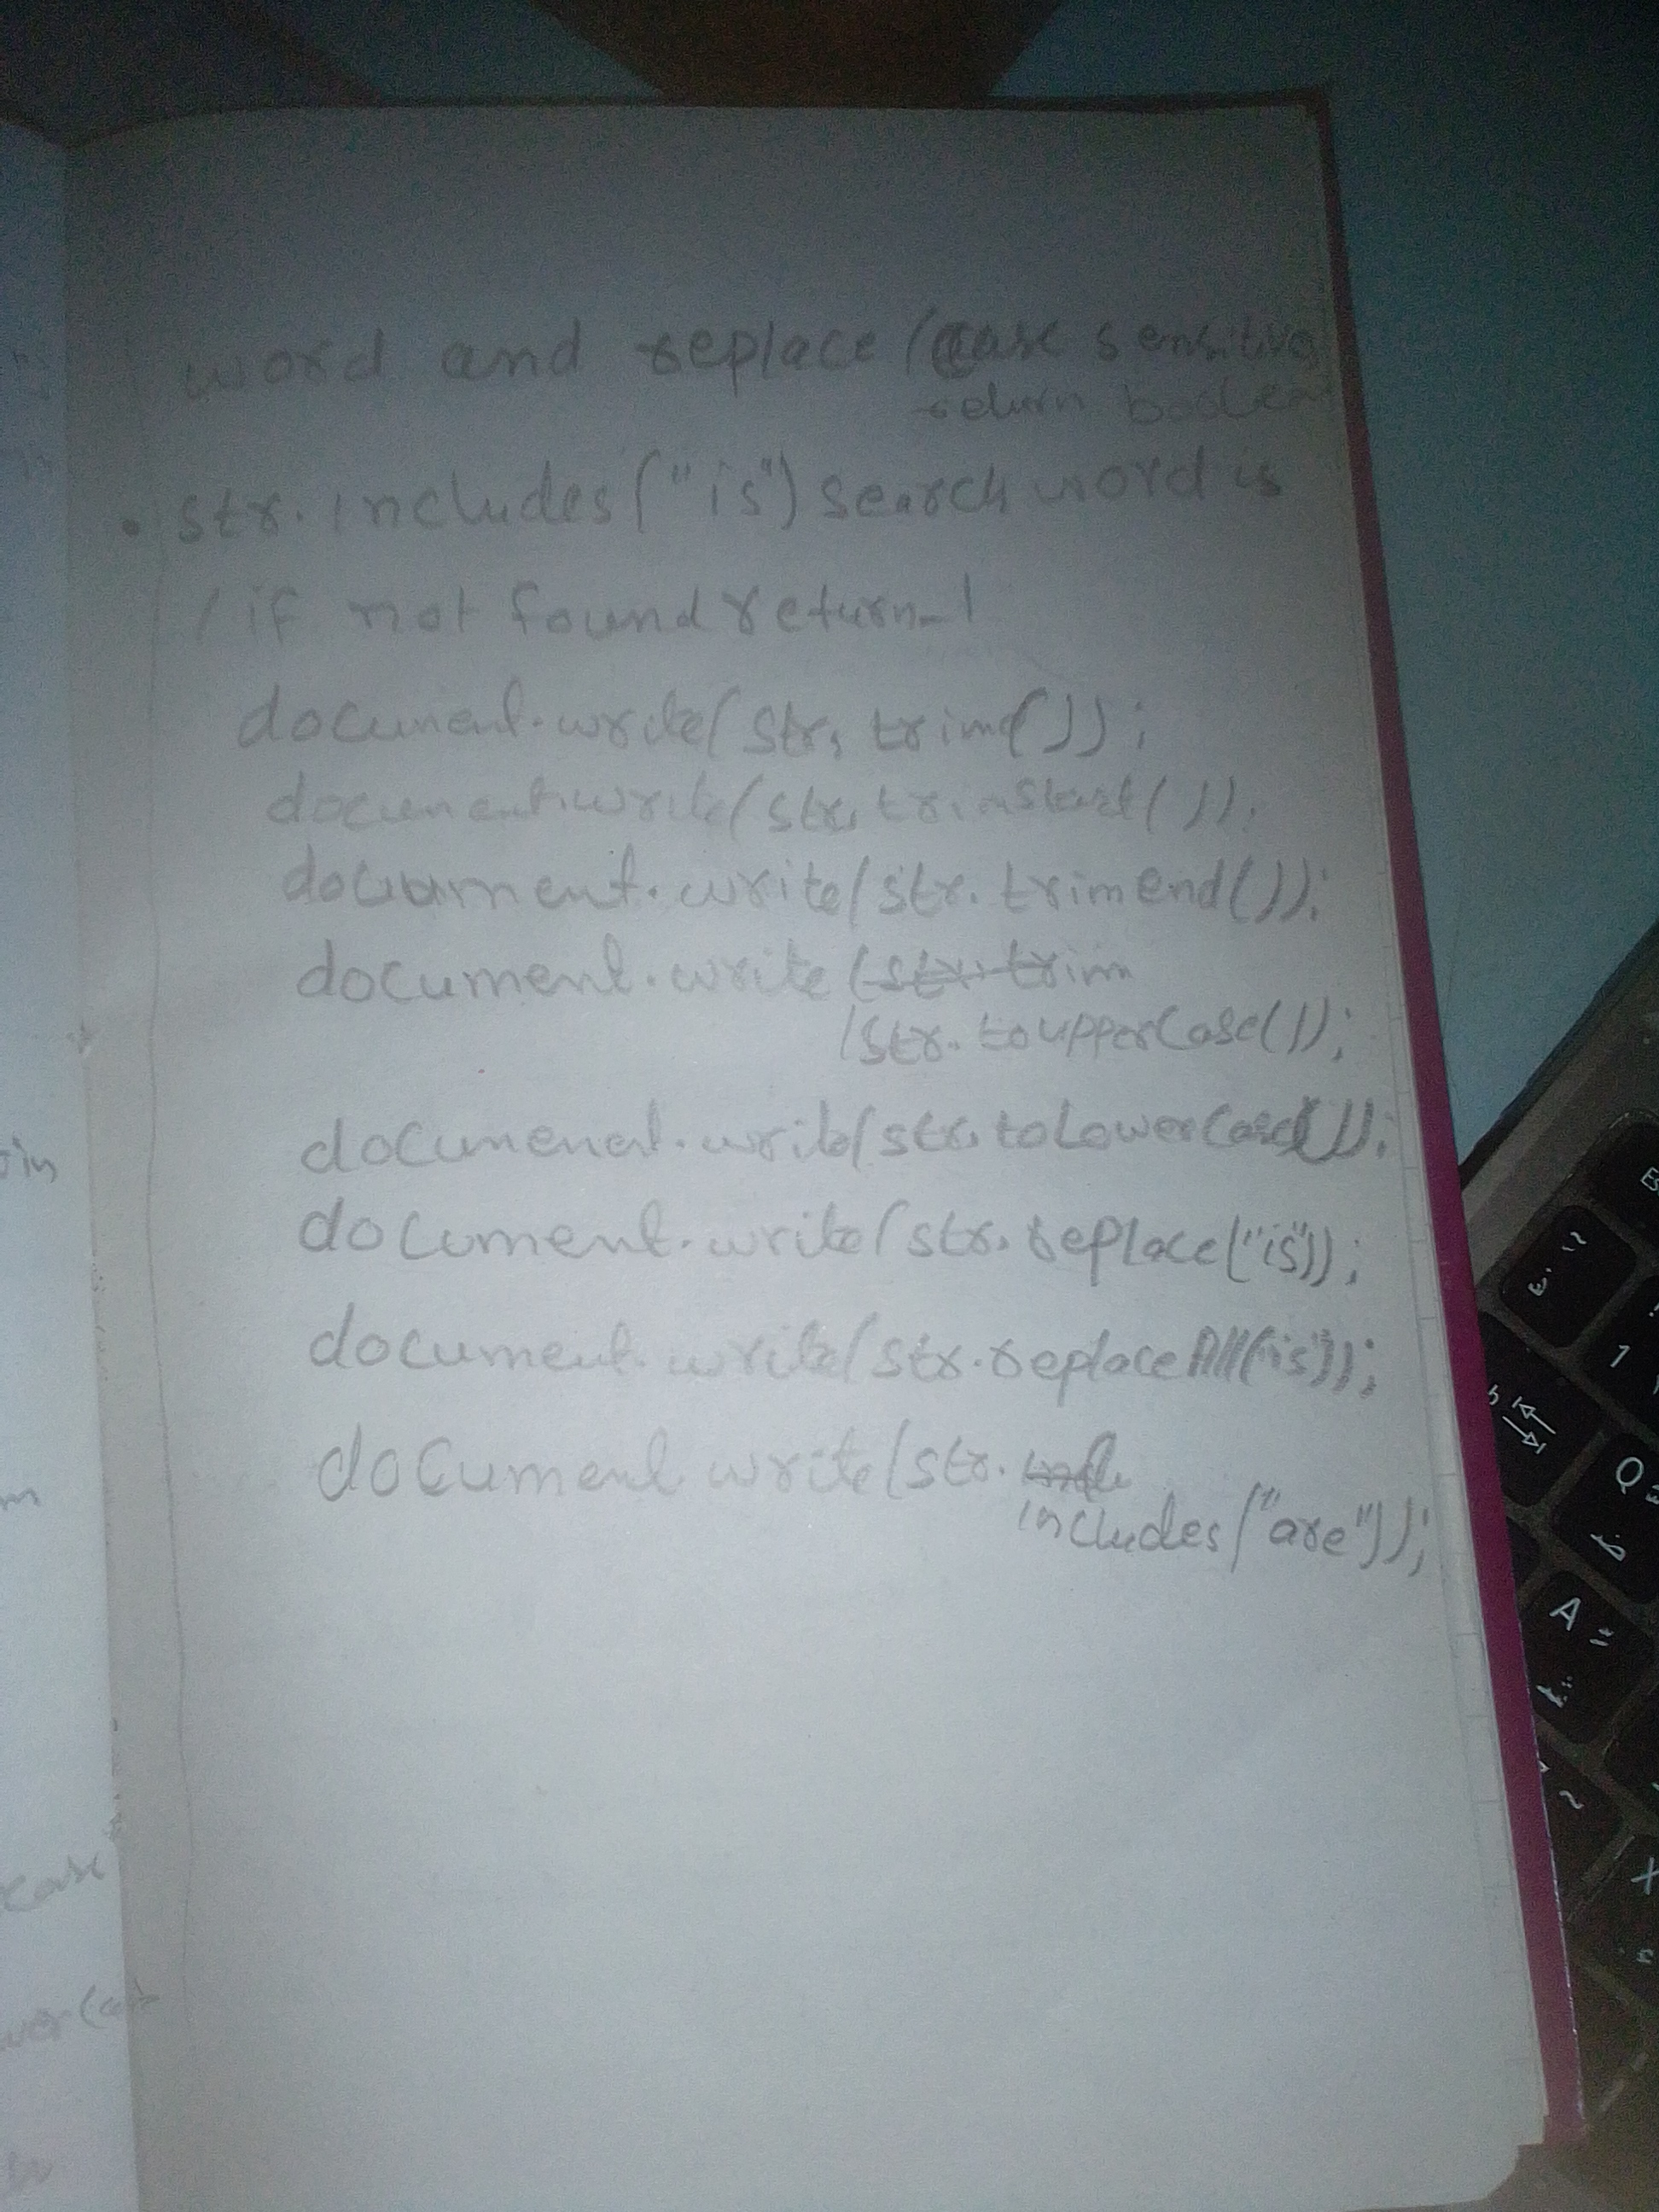 word and replace (case sensitive
return boolean
• str.includes("is") search word is
/ if not found return -1
document.write(str.trim());
document.write(str.trimStart());
document.write(str.trimEnd());
document.write(str.trim
(str.toupperCase());
documenent.write(str.toLowerCase());
document.write(str.replace("is"));
document.write(str.replaceAll("is"));
document.write(str.
includes("are"));